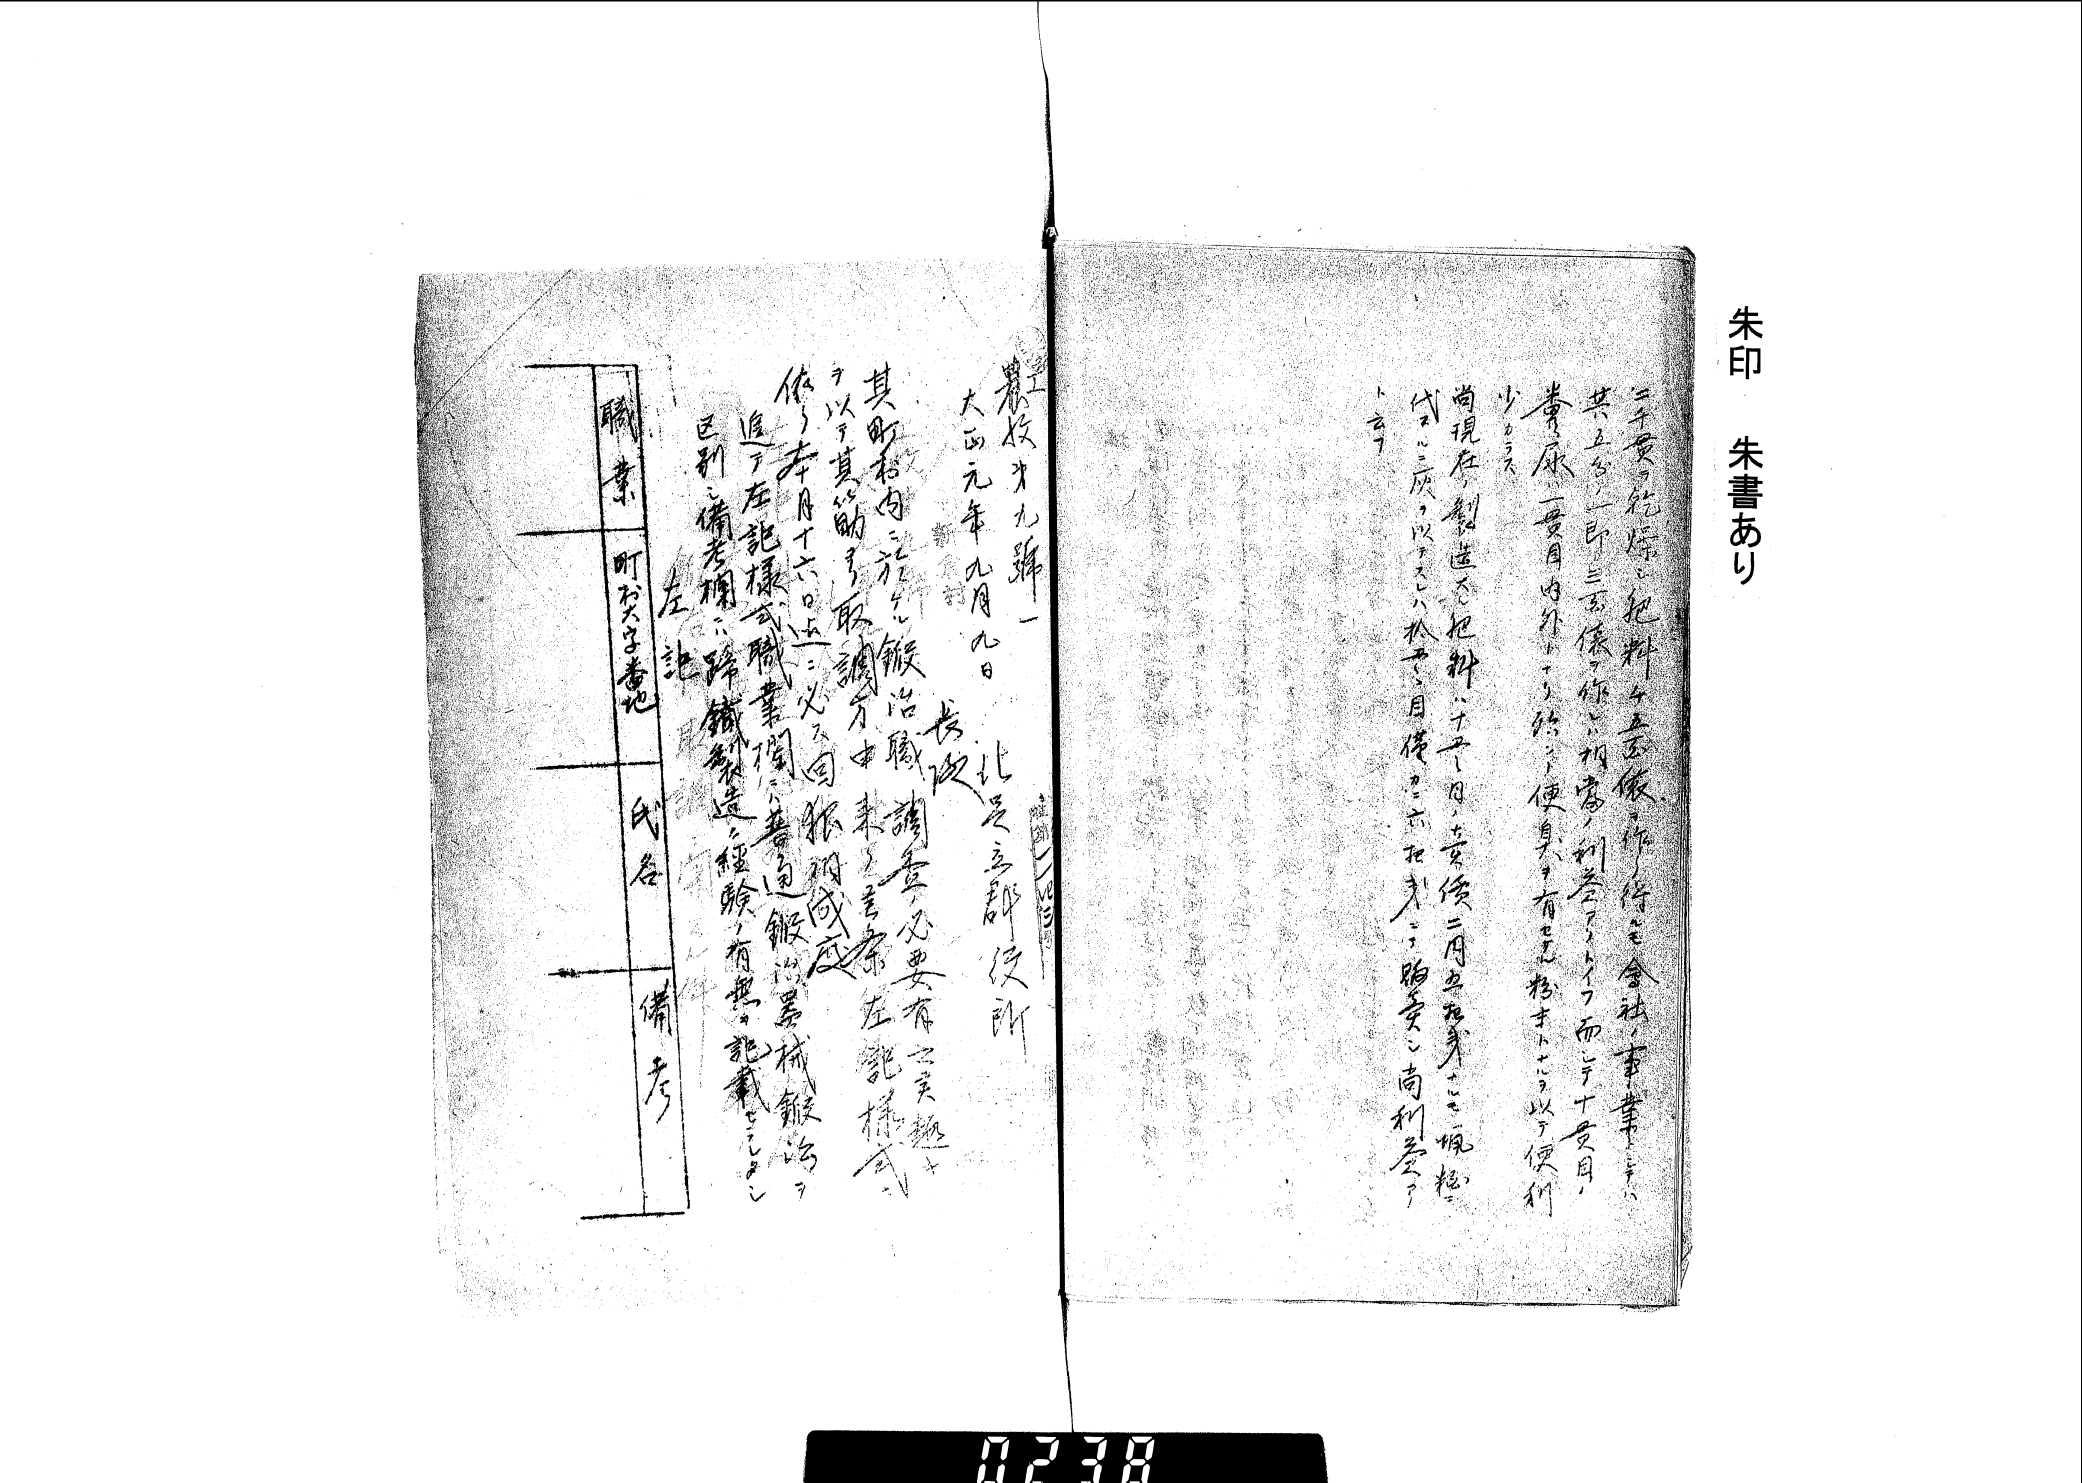 朱印 朱書あり
二千貫ヲ乾燥シ肥料千五百俵ヲ作リ得ルモ會社ノ事業トシテハ
其五分ノ一即三百俵ヲ作レハ相當ノ利益アリトイフ而シテ十貫目ノ
糞尿ハ一貫目内外トナリ殆ント便臭ヲ有セサル粉末トナルヲ以テ便利
少カラス
尚現在ノ製造スル肥料ハ十五貫目ノ賣價二円五拾戔ナルモ籾糠ニ
代フルニ灰ヲ以テスレハ拾五貫目僅カニ六拾戔ニテ販賣シ尚利益アリ
ト云フ
農牧第九號ノ一
大正元年九月九日
北足立郡役所
長殿
其町村内ニ於ケル鍛冶職調査ノ必要有之其趣キ
ヲ以テ其筋ヨリ取調方申来リ候条左記様式ニ
依リ本月十六日迄ニ必ス回報相成度
追テ左記様式職業欄ニハ普通鍛冶器械鍛冶ヲ
区別シ備考欄ニハ蹄鐵製造ニ経験ノ有無ヲ記載セラレタシ
左記
職業
町村大字番地
氏名
備考
0238